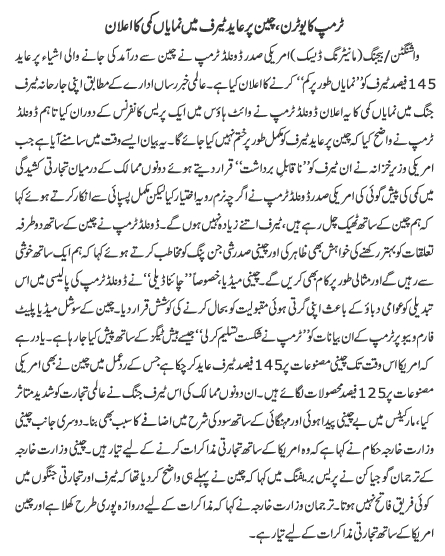 ٹرمپ کا یوٹرن، چین پر عاید ٹیرف میں نمایاں کمی کا اعلان
واشنگٹن/بیجنگ (مانیٹرنگ ڈیسک) امریکی صدر ڈونلڈ ٹرمپ نے چین سے درآمد کی جانے والی اشیاء پر عاید
145 فیصد ٹیرف کو ”نمایاں طور پر کم“ کرنے کا اعلان کیا ہے۔ عالمی خبر رساں ادارے کے مطابق اپنی جارحانہ ٹیرف
جنگ میں نمایاں کمی کا یہ اعلان ڈونلڈ ٹرمپ نے وائٹ ہاؤس میں ایک پریس کانفرنس کے دوران کیا تاہم ڈونلڈ
ٹرمپ نے واضح کیا کہ چین پر عاید ٹیرف کو مکمل طور پر ختم نہیں کیا جائے گا۔ یہ بیان ایسے وقت میں سامنے آیا ہے جب
امریکی وزیر خزانہ نے ان ٹیرف کو ”ناقابلِ برداشت“ قرار دیتے ہوئے دونوں ممالک کے درمیان تجارتی کشیدگی
میں کمی کی پیش گوئی کی امریکی صدر ڈونلڈ ٹرمپ نے اگرچہ نرم رویہ اختیار کیا لیکن مکمل پسپائی سے انکار کرتے ہوئے کہا
کہ ہم چین کے ساتھ ٹھیک چل رہے ہیں، ٹیرف اتنے زیادہ نہیں ہوں گے۔ ڈونلڈ ٹرمپ نے چین کے ساتھ دوطرفہ
تعلقات کو بہتر رکھنے کی خواہش بھی ظاہر کی اور چینی صدر شی جن پنگ کو مخاطب کرتے ہوئے کہا کہ ہم ایک ساتھ خوشی
سے رہیں گے اور مثالی طور پر کام بھی کریں گے۔ چینی میڈیا، خصوصاً ”چائنا ڈیلی“ نے ڈونلڈ ٹرمپ کی پالیسی میں اس
تبدیلی کو عوامی دباؤ کے باعث اپنی گرتی ہوئی مقبولیت کو بحال کرنے کی کوشش قرار دیا۔ چین کے سوشل میڈیا پلیٹ
فارم ویبو پر ٹرمپ کے ان بیانات کو ”ٹرمپ نے شکست تسلیم کر لی“ جیسے ہیش ٹیگز کے ساتھ پیش کیا جا رہا ہے۔ یاد رہے
کہ امریکا اس وقت تک چینی مصنوعات پر 145 فیصد ٹیرف عاید کر چکا ہے جس کے ردعمل میں چین نے بھی امریکی
مصنوعات پر 125 فیصد محصولات لگائے ہیں۔ ان دونوں ممالک کی اس ٹیرف جنگ نے عالمی تجارت کو شدید متاثر
کیا، مارکیٹس میں بے چینی پیدا ہوئی اور مہنگائی کے ساتھ سود کی شرح میں اضافے کا سبب بھی بنا۔ دوسری جانب چینی
وزارت خارجہ حکام نے کہا ہے کہ وہ امریکا کے ساتھ تجارتی مذاکرات کرنے کے لیے تیار ہیں۔ چینی وزارت خارجہ
کے ترجمان گو جیا کن نے پریس بریفنگ میں کہا کہ چین نے پہلے ہی واضح کر دیا تھا کہ ٹیرف اور تجارتی جنگوں میں
کوئی فریق فاتح نہیں ہوتا۔ ترجمان وزارت خارجہ نے کہا کہ مذاکرات کے لیے دروازہ پوری طرح کھلا ہے اور چین
امریکا کے ساتھ تجارتی مذاکرات کے لیے تیار ہے۔